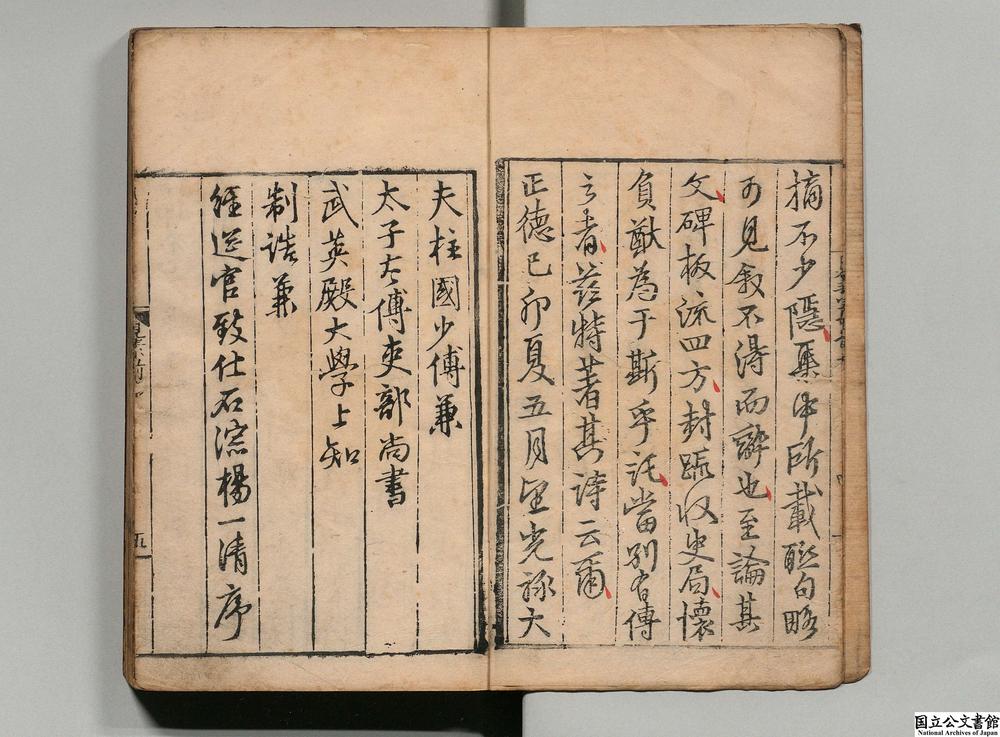 摘不少隱集中所載聯句略
可見敘不得而辭也至論其
文碑板流四方封疏收史局懷
負猷為于斯乎託當別有傳
之者茲特著其詩云爾
正德己卯夏五月望光祿大
夫柱國少傅兼
太子太傅吏部尚書
武英殿大學士知
制誥兼
經筵官致仕石淙楊一清序
五
国立公文書館
National Archives of Japan